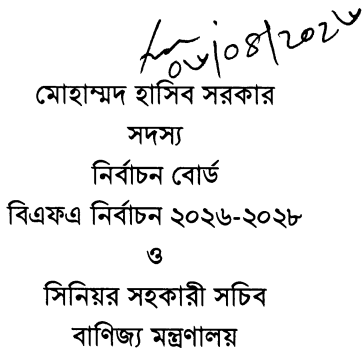 ০৬/০৪/২০২৬
মোহাম্মদ হাসিব সরকার
সদস্য
নির্বাচন বোর্ড
বিএফএ নির্বাচন ২০২৬-২০২৮
ও
সিনিয়র সহকারী সচিব
বাণিজ্য মন্ত্রণালয়